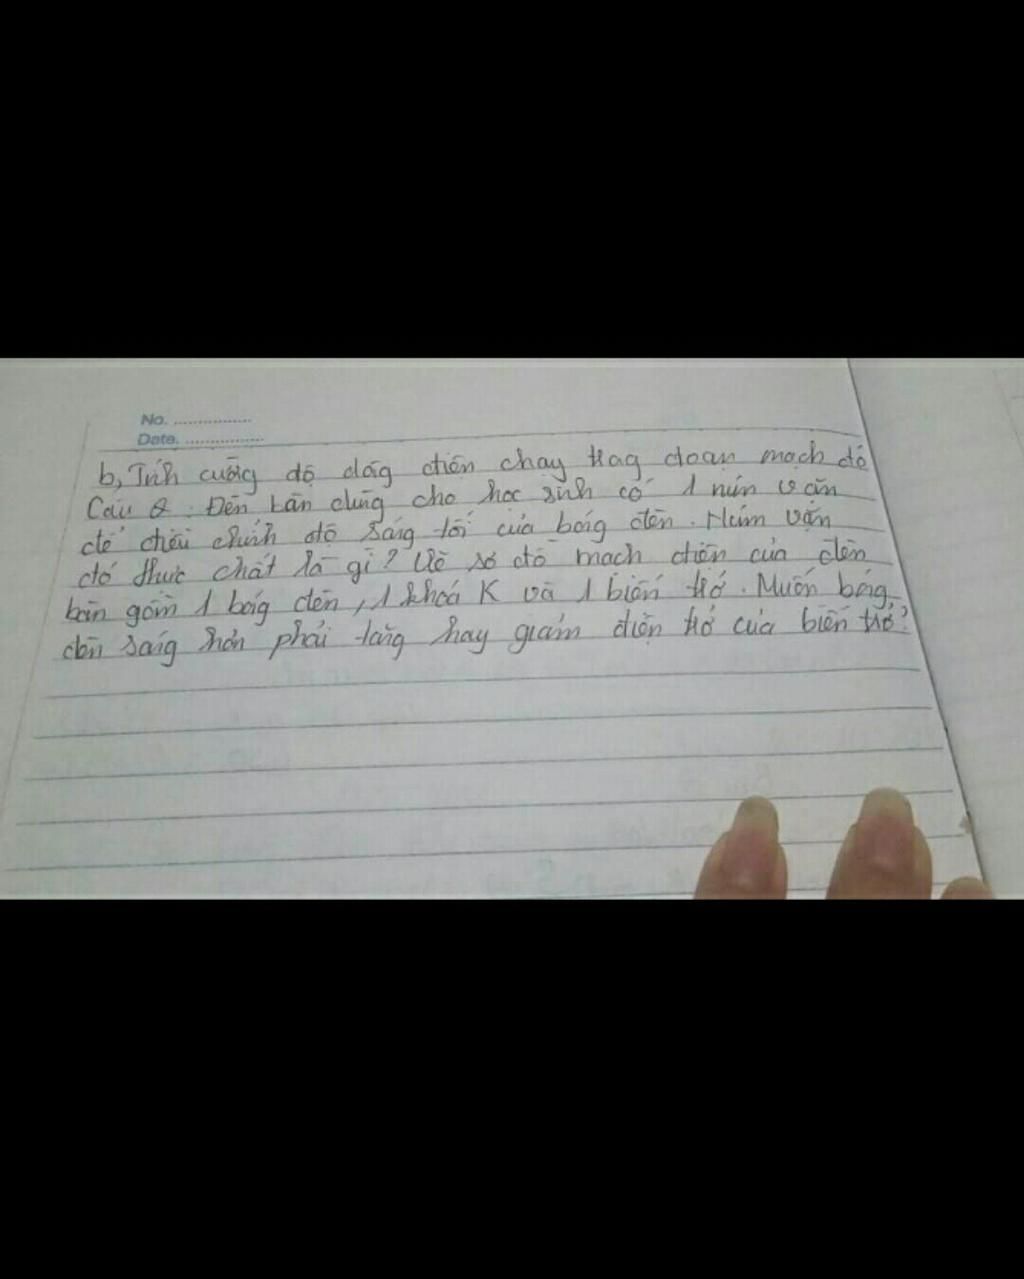 No. ................
Date. ................
b, Tính cường độ dòng điện chạy trog đoạn mạch đó
Câu 8: Đèn bàn dùng cho học sinh có 1 núm vặn
để điều chỉnh độ sáng tối của bóng đèn. Núm vặn
đó thực chất là gì? Vẽ sơ đồ mạch điện của đèn
bàn gồm 1 bóng đèn, 1 khoá K và 1 biến trở. Muốn bóng
đèn sáng hơn phải tăng hay giảm điện trở của biến trở?